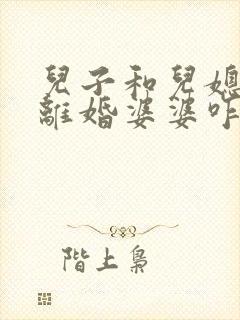 兒子和兒媳
離婚婆婆咋
階上梟